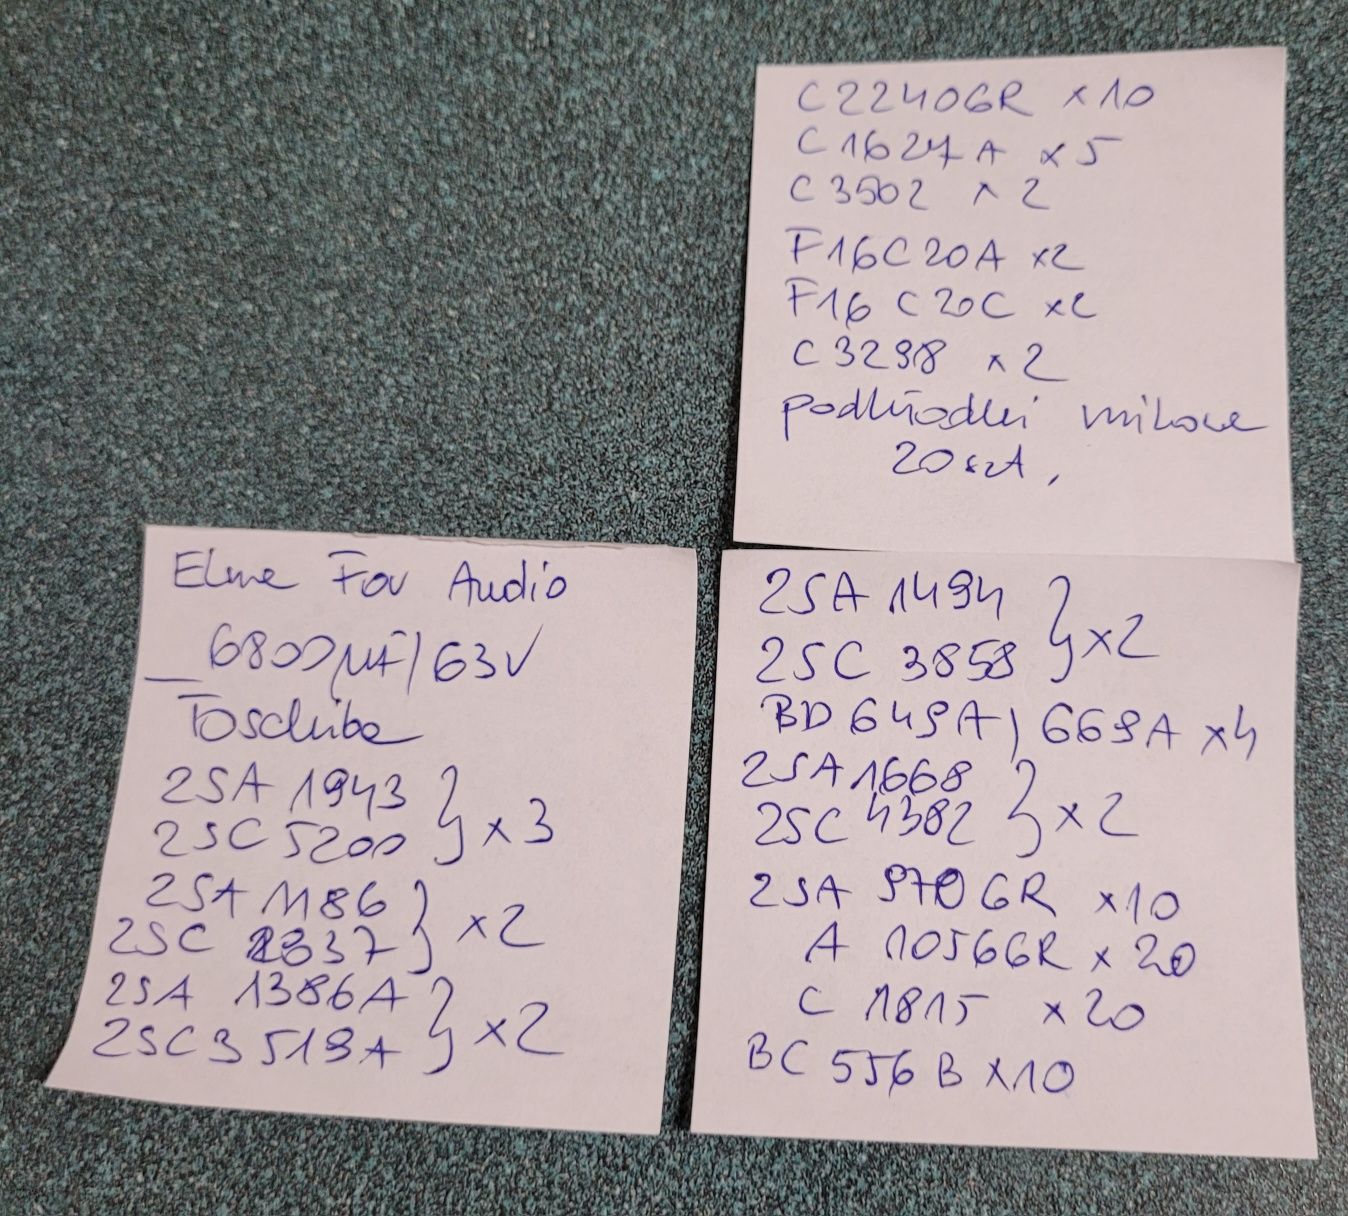 C2240GR x10
C1627A x5
C3502 x2
F16C20A x2
F16C20C x2
C3298 x2
podkładki mikowe
20szt.
Elna For Audio
6800µF/63V
Toschiba
2SA 1943
2SC 5200 } x3
2SA 1186
2SC 2837 } x2
2SA 1386A
2SC3519A } x2
2SA 1494
2SC 3858 } x2
BD 649A/ 669A x4
2SA1668
2SC 4382 } x2
2SA 970GR x10
A 1056GR x20
C 1815 x20
BC 556B x10